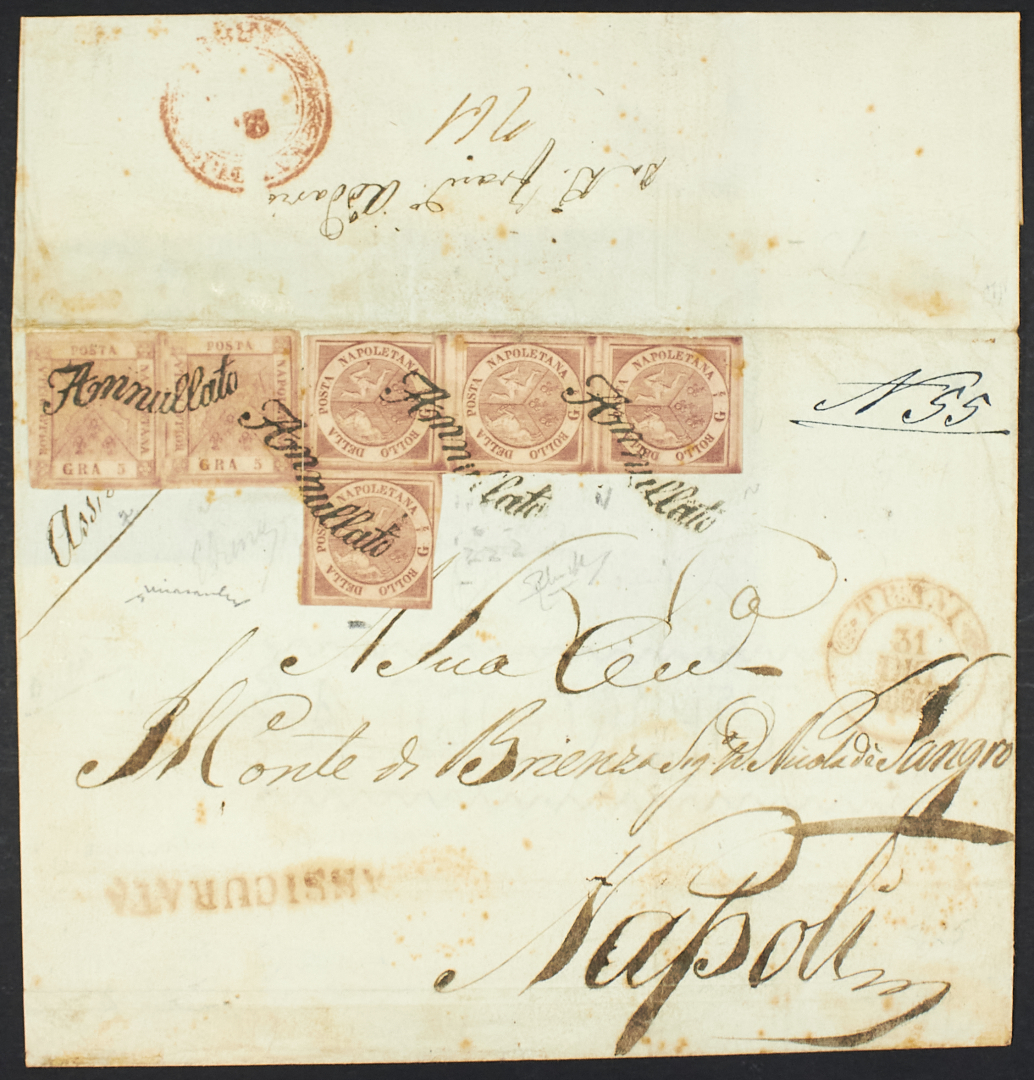 POSTA NAPOLETANA GRA 5
POSTA NAPOLETANA GRA 5
BOLLO DELLA POSTA NAPOLETANA G
BOLLO DELLA POSTA NAPOLETANA G
BOLLO DELLA POSTA NAPOLETANA G
Annullato
Annullato
Annullato
Annullato
N 55
BOLLO DELLA POSTA NAPOLETANA G
Ass
TRANI
31
DIC
A Sua Ecc
Il Conte di Brienza Sig. D. Nicola di Sangro
ASSICURATA
Napoli